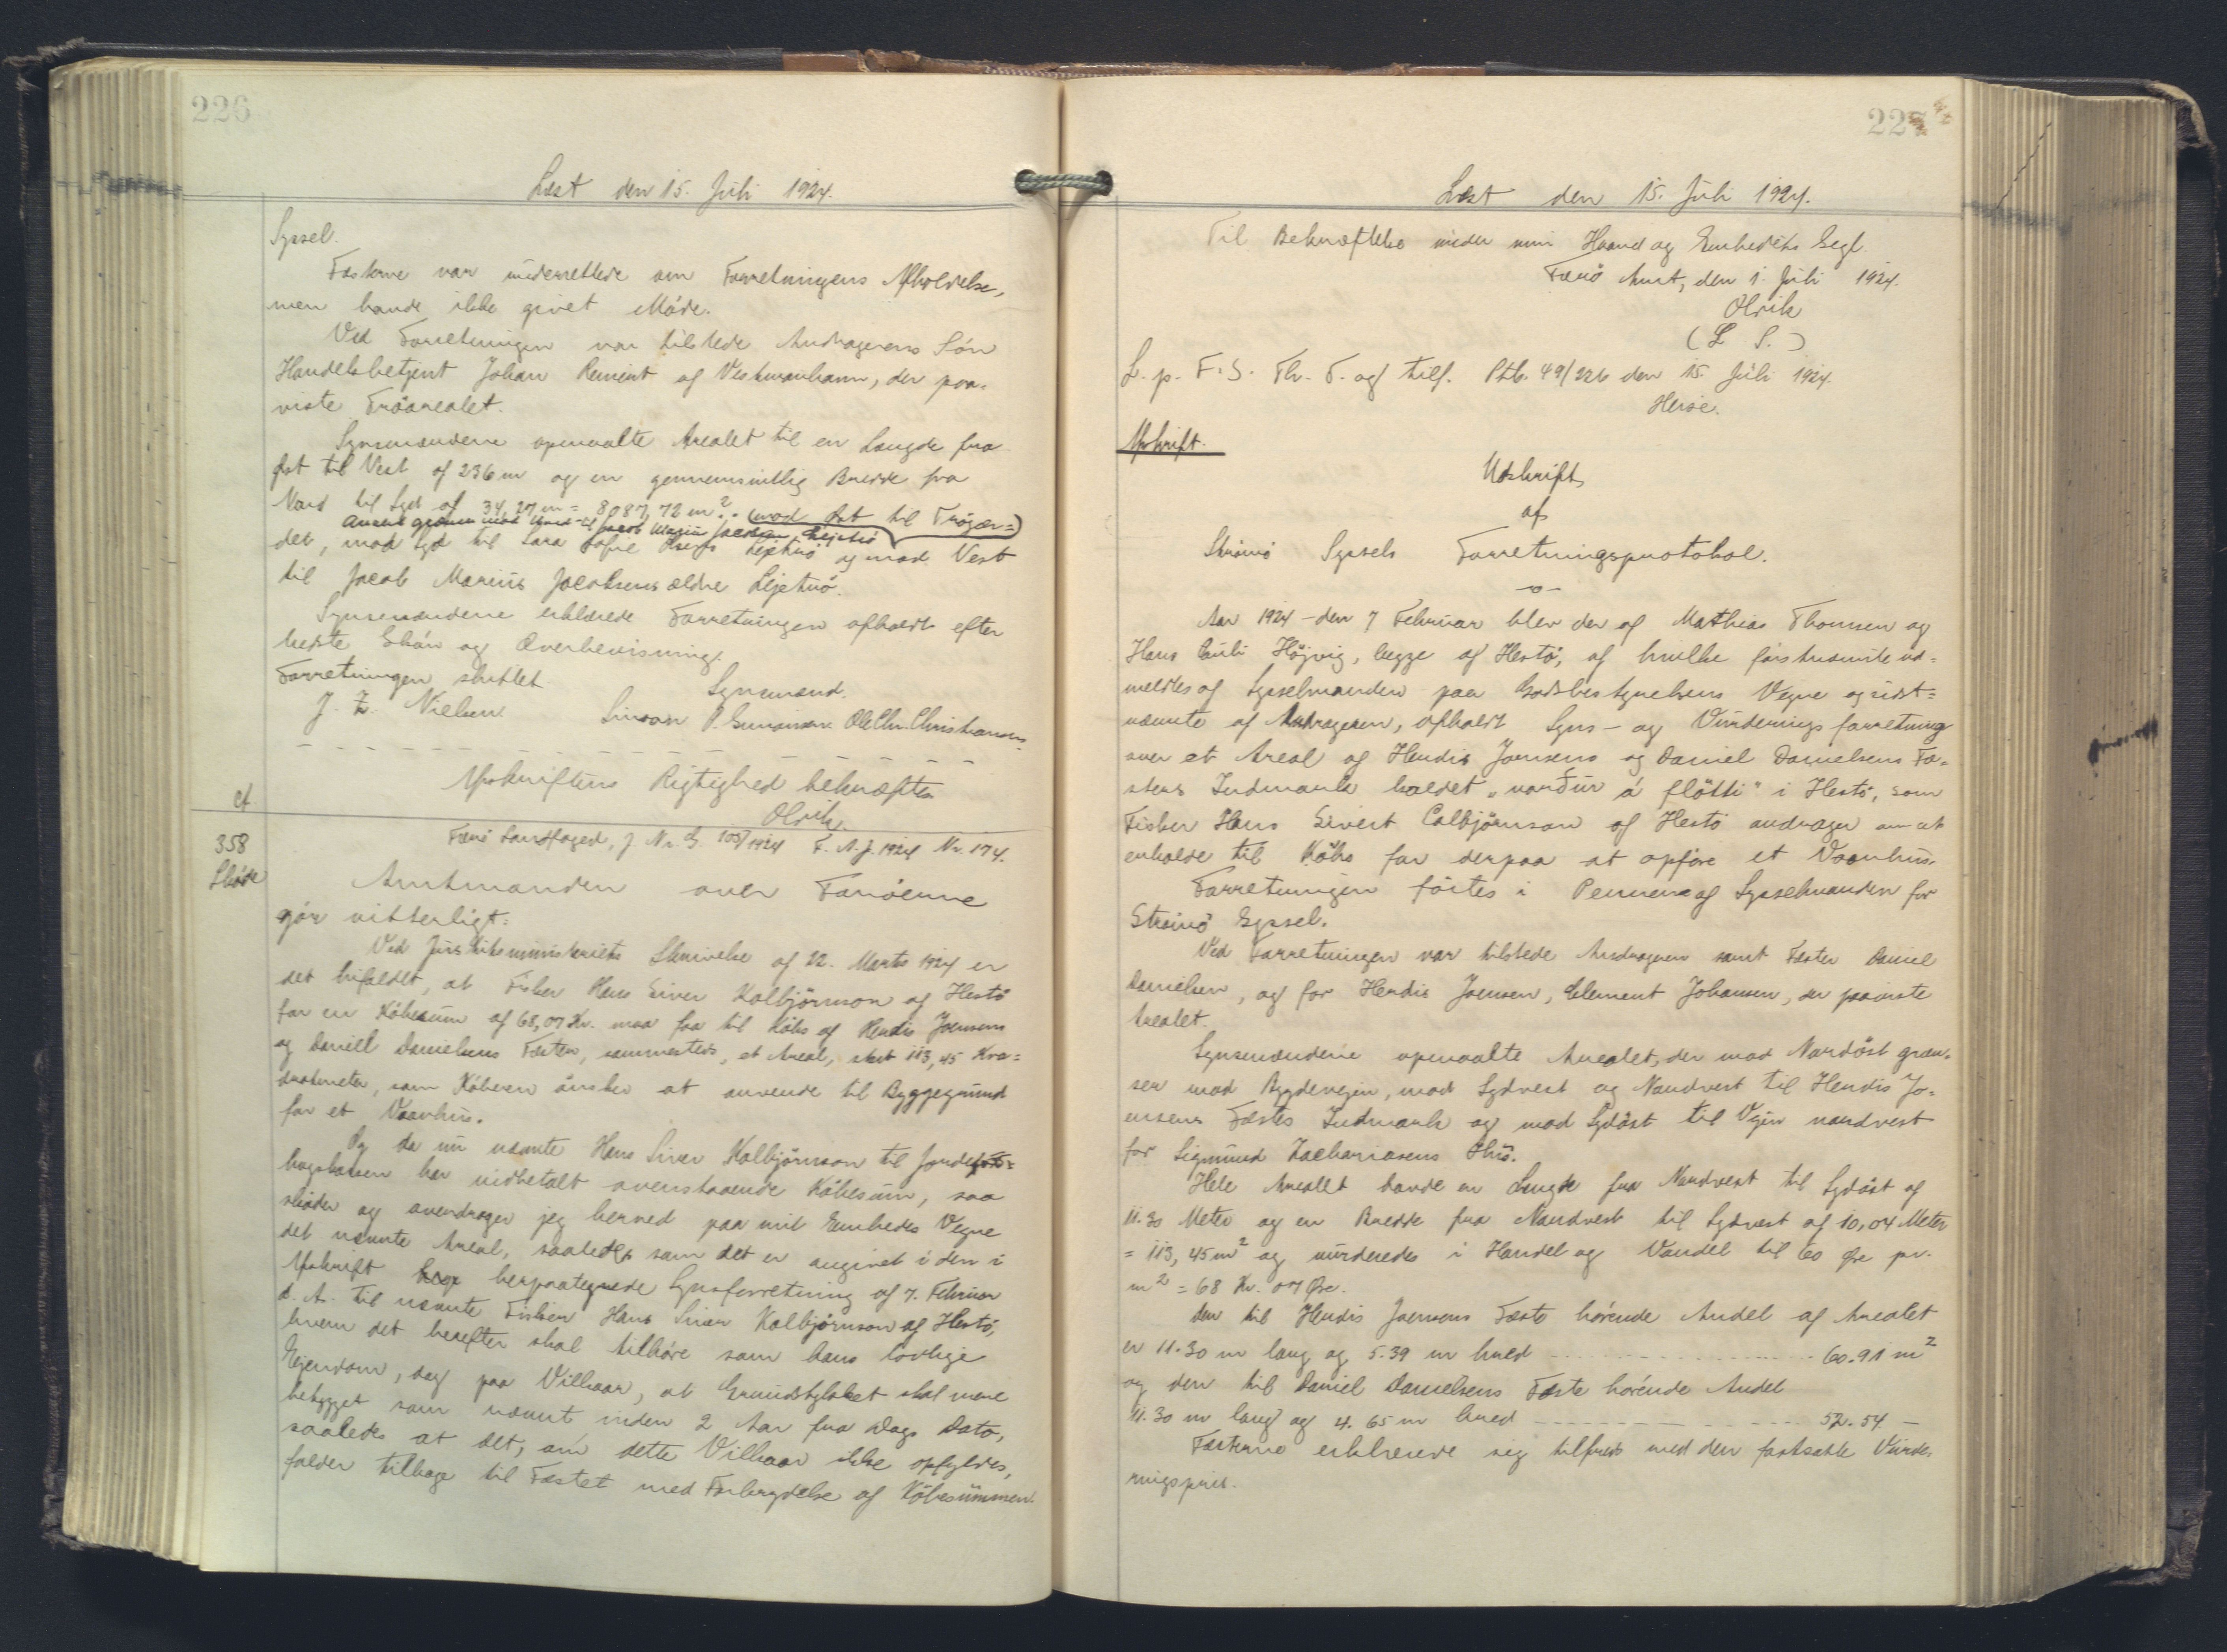 226
Læst den 15. Juli 1924.
Syssel.
Fæsterne var underrettede om Forretningens Afholdelse,
men havde ikke givet Møde.
Ved Forretningen var tilstede Andragerens Søn
Handelsbetjent Johan Rement af Vestmanhavn, der paa-
viste Trøarealet.
Synsmændene opmaalte Arealet til en Længde fra
Øst til Vest af 236 m og en gennemsnitlig Bredde fra
Nord til Syd af 34,27 m = 8087,72 m². (mod Øst til Trøgær=)
Arealet grænser mod Nord til Jacob Marius Jacobsens Lejetrø
det, mod Syd til Sara Sofie Lejetrø og mod Vest
til Jacob Marius Jacobsens ældre Lejetrø.
Synsmændene erklærede Forretningen afholdt efter
bedste Skøn og Overbevisning.
Forretningen sluttet.
Synsmænd.
J. Z. Nielsen. Simon P. Ole Chr. Christiansen.
Afskriftens Rigtighed bekræftes
Olrik.
cf
358
Skøde
Færø Landfoged, J. Nr. G. 103/1924 F. A. J. 1924 Nr. 174.
Amtmanden over Færøerne
gør vitterligt:
Ved Justitsministeriets Skrivelse af 22. Marts 1924 er
det bifaldet, at Fisker Hans Siver Kolbjörnson af Hestö
for en Købesum af 68,07 Kr. maa faa til Købs af Hendis Joensens
og Daniel Danielsens Fæster, sammesteds, et Areal, stort 113,45 Kva=
dratmeter, som Køberen ønsker at anvende til Byggegrund
for et Vaanhus.
Og da nu nævnte Hans Siver Kolbjörnson til Jorde
bogskassen har indbetalt ovenstaaende Købesum, saa
skøder og overdrager jeg herved paa mit Embedes Vegne
det nævnte Areal, saaledes som det er angivet i den i
Afskrift herpaategnede Synsforretning af 7. Februar
d. A. til nævnte Fisker Hans Siver Kolbjörnson af Hestö,
hvem det herefter skal tilhøre som hans lovlige
Ejendom, dog paa Vilkaar, at Grundstykket skal være
bebygget som nævnt inden 2 Aar fra Dags Dato,
saaledes at det, om dette Vilkaar ikke opfyldes,
falder tilbage til Fæstet med Forbrydelse af Købesummen.
227
Læst den 15. Juli 1924.
Til Bekræftelse under min Haand og Embedets Segl
Færø Amt, den 1. Juli 1924.
Olrik
(L S.)
L. p. F. S. Th. F. og tilf. Ptb. 49/226 den 15. Juli 1924.
Heise.
Afskrift.
Udskrift
af
Strømø Syssels Forretningsprotokol.
-o-
Aar 1924 - den 7 Februar blev der af Mathias Thomsen og
Hans Pauli Højvig, begge af Hestö, af hvilke førstnævnte ud=
meldtes af Sysselmanden paa Godsbestyrelsens Vegne og sidst=
nævnte af Andrageren, afholdt Syns- og Vurderingsforretning
over et Areal af Hendis Joensens og Daniel Danielsens Fæ-
sters Indmark kaldet "norður á flötti" i Hestö, som
Fisker Hans Sivert Colbjörnson af Hestö andrager om at
erholde til Købs for derpaa at opføre et Vaanhus.
Forretningen førtes i Pennen af Sysselmanden for
Strømø Syssel.
Ved Forretningen var tilstede Andrageren samt Fæster Daniel
Danielsen, og for Hendis Joensen, Clement Johansen, der paaviste
Arealet.
Synsmændene opmaalte Arealet, der mod Nordöst græn-
ser mod Bygdevejen, mod Sydvest og Nordvest til Hendis Jo-
ensens Fæstes Indmark og mod Sydöst til Vejen nordvest
for Sigmund Zachariasens Hus.
Hele Arealet havde en Længde fra Nordvest til Sydöst af
11.30 Meter og en Bredde fra Nordvest til Sydvest af 10,04 Meter
= 113,45 m² og vurderedes i Handel og Vandel til 60 Øre pr.
m² = 68 Kr. 07 Øre.
Den til Hendis Joensens Fæste hørende Andel af Arealet
er 11.30 m lang og 5.39 m bred 60.91 m²
og den til Daniel Danielsens Fæste hørende Andel
11.30 m lang og 4.65 m bred 52.54 -
Fæsterne erklærede sig tilfreds med den fastsatte Vurde-
ringspris.